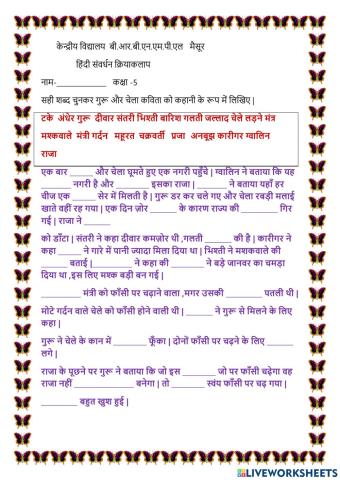 केन्द्रीय विद्यालय बी.आर.बी.एन.एम.पी.एल मैसूर
हिंदी संवर्धन क्रियाकलाप
नाम-____________ कक्षा -5
सही शब्द चुनकर गुरू और चेला कविता को कहानी के रूप में लिखिए |
टके अंधेर गुरू दीवार संतरी भिश्ती बारिश गलती जल्लाद चेले लड़ने मंत्र
मश्कवाले मंत्री गर्दन महूरत चक्रवर्ती प्रजा अनबूझ कारीगर ग्वालिन
राजा
एक बार ______ और चेला घूमते हुए एक नगरी पहुँचे | ग्वालिन ने बताया कि यह
_______ नगरी है और ________ इसका राजा | _______ ने बताया यहाँ हर
चीज एक _____ सेर में मिलती है | गुरू डर कर चले गए और चेला रबड़ी मलाई
खाते वहीं रह गया | एक दिन ज़ोर _______ के कारण राज्य की ________ गिर
गई | राजा ने ______
को डाँटा | संतरी ने कहा दीवार कमज़ोर थी ,गलती ______ की है | कारीगर ने
कहा ______ ने गारे में पानी ज्यादा मिला दिया था | भिश्ती ने मशकवाले की
_______ बताई |__________ ने कहा की ________ ने बड़े जानवर का चमड़ा
दिया था ,इस लिए मश्क बड़ी बन गई |
__________ मंत्री को फाँसी पर चढ़ाने वाला ,मगर उसकी _________ पतली थी |
मोटे गर्दन वाले चेले को फाँसी होने वाली थी | ______ ने गुरू से मिलने के लिए
कहा |
गुरू ने चेले के कान में ________ फूँका | दोनों फाँसी पर चढ़ने के लिए ______
लगे |
राजा के पूछने पर गुरू ने बताया कि जो इस ________ जो पर फाँसी चढ़ेगा वह
राजा नहीं ____________ बनेगा | तो _______ स्वंय फाँसी पर चढ़ गया |
_________ बहुत खुश हुई |
LIVEWORKSHEETS